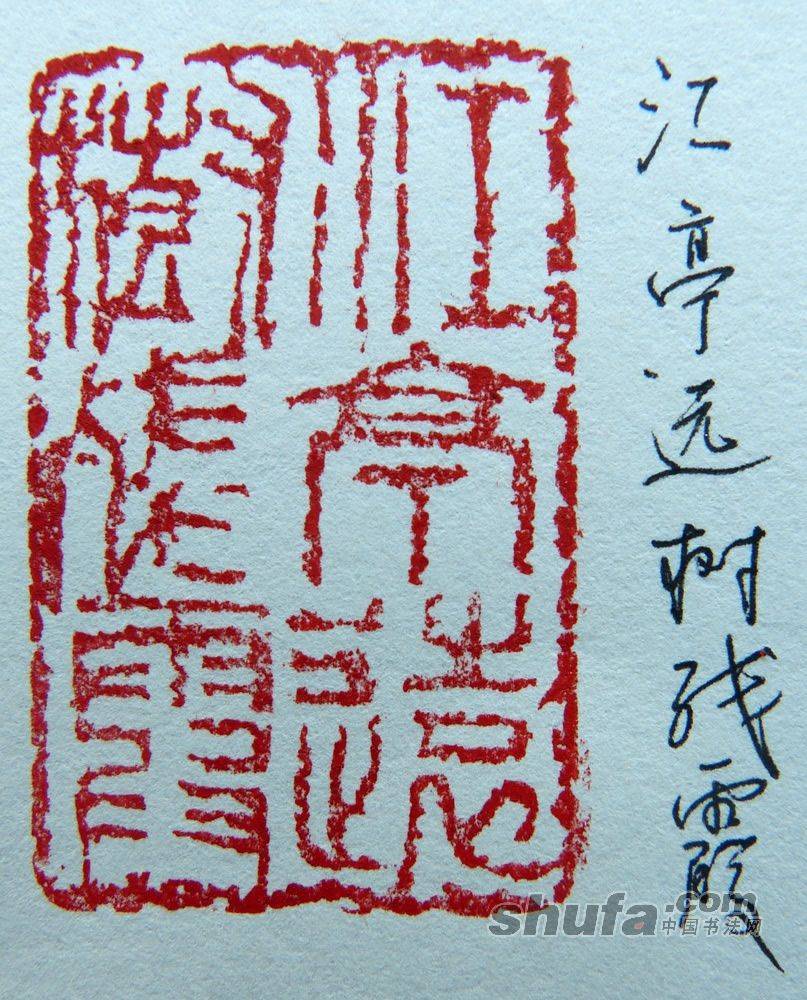 江亭远树残霞
江亭遠
樹殘霞
shufa.com
中国书法网